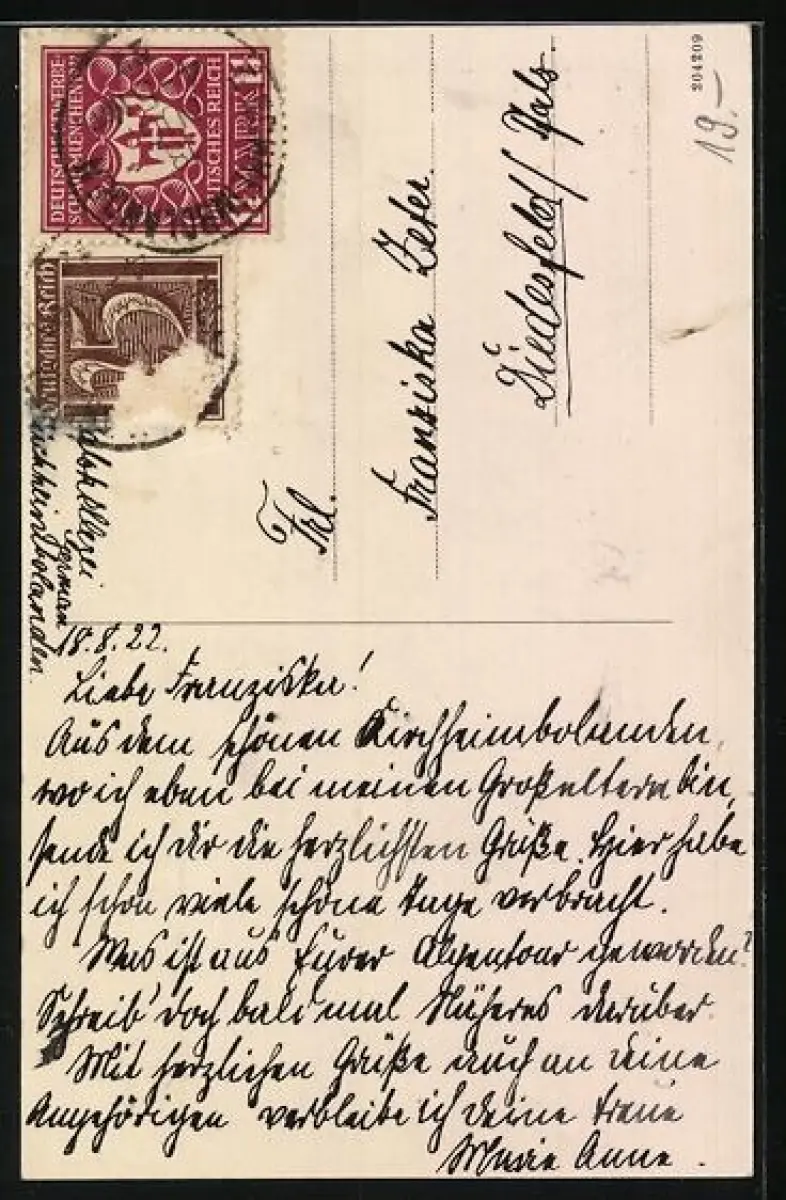 204209
19.-
DEUTSCHE GEWERBE-
SCHAU MUENCHEN
DEUTSCHES REICH
MARK
Deutsches Reich
75
Frl.
Franziska Zeter.
Diedesfeld / Pfalz.
Kirchheimbolanden
18.8.22.
Liebe Franziska!
Aus dem schönen Kirchheimbolanden,
wo ich eben bei meinen Großeltern bin,
sende ich dir die herzlichsten Grüße. Hier habe
ich schon viele schöne Tage verbracht.
Was ist aus Eurer Alpentour geworden?
Schreib' doch bald mal Näheres darüber.
Mit herzlichen Grüße auch an deine
Angehörigen verbleibe ich deine treue
Marie Anne.